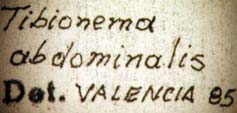 Tibionema
abdominalis
Det. VALENCIA 85